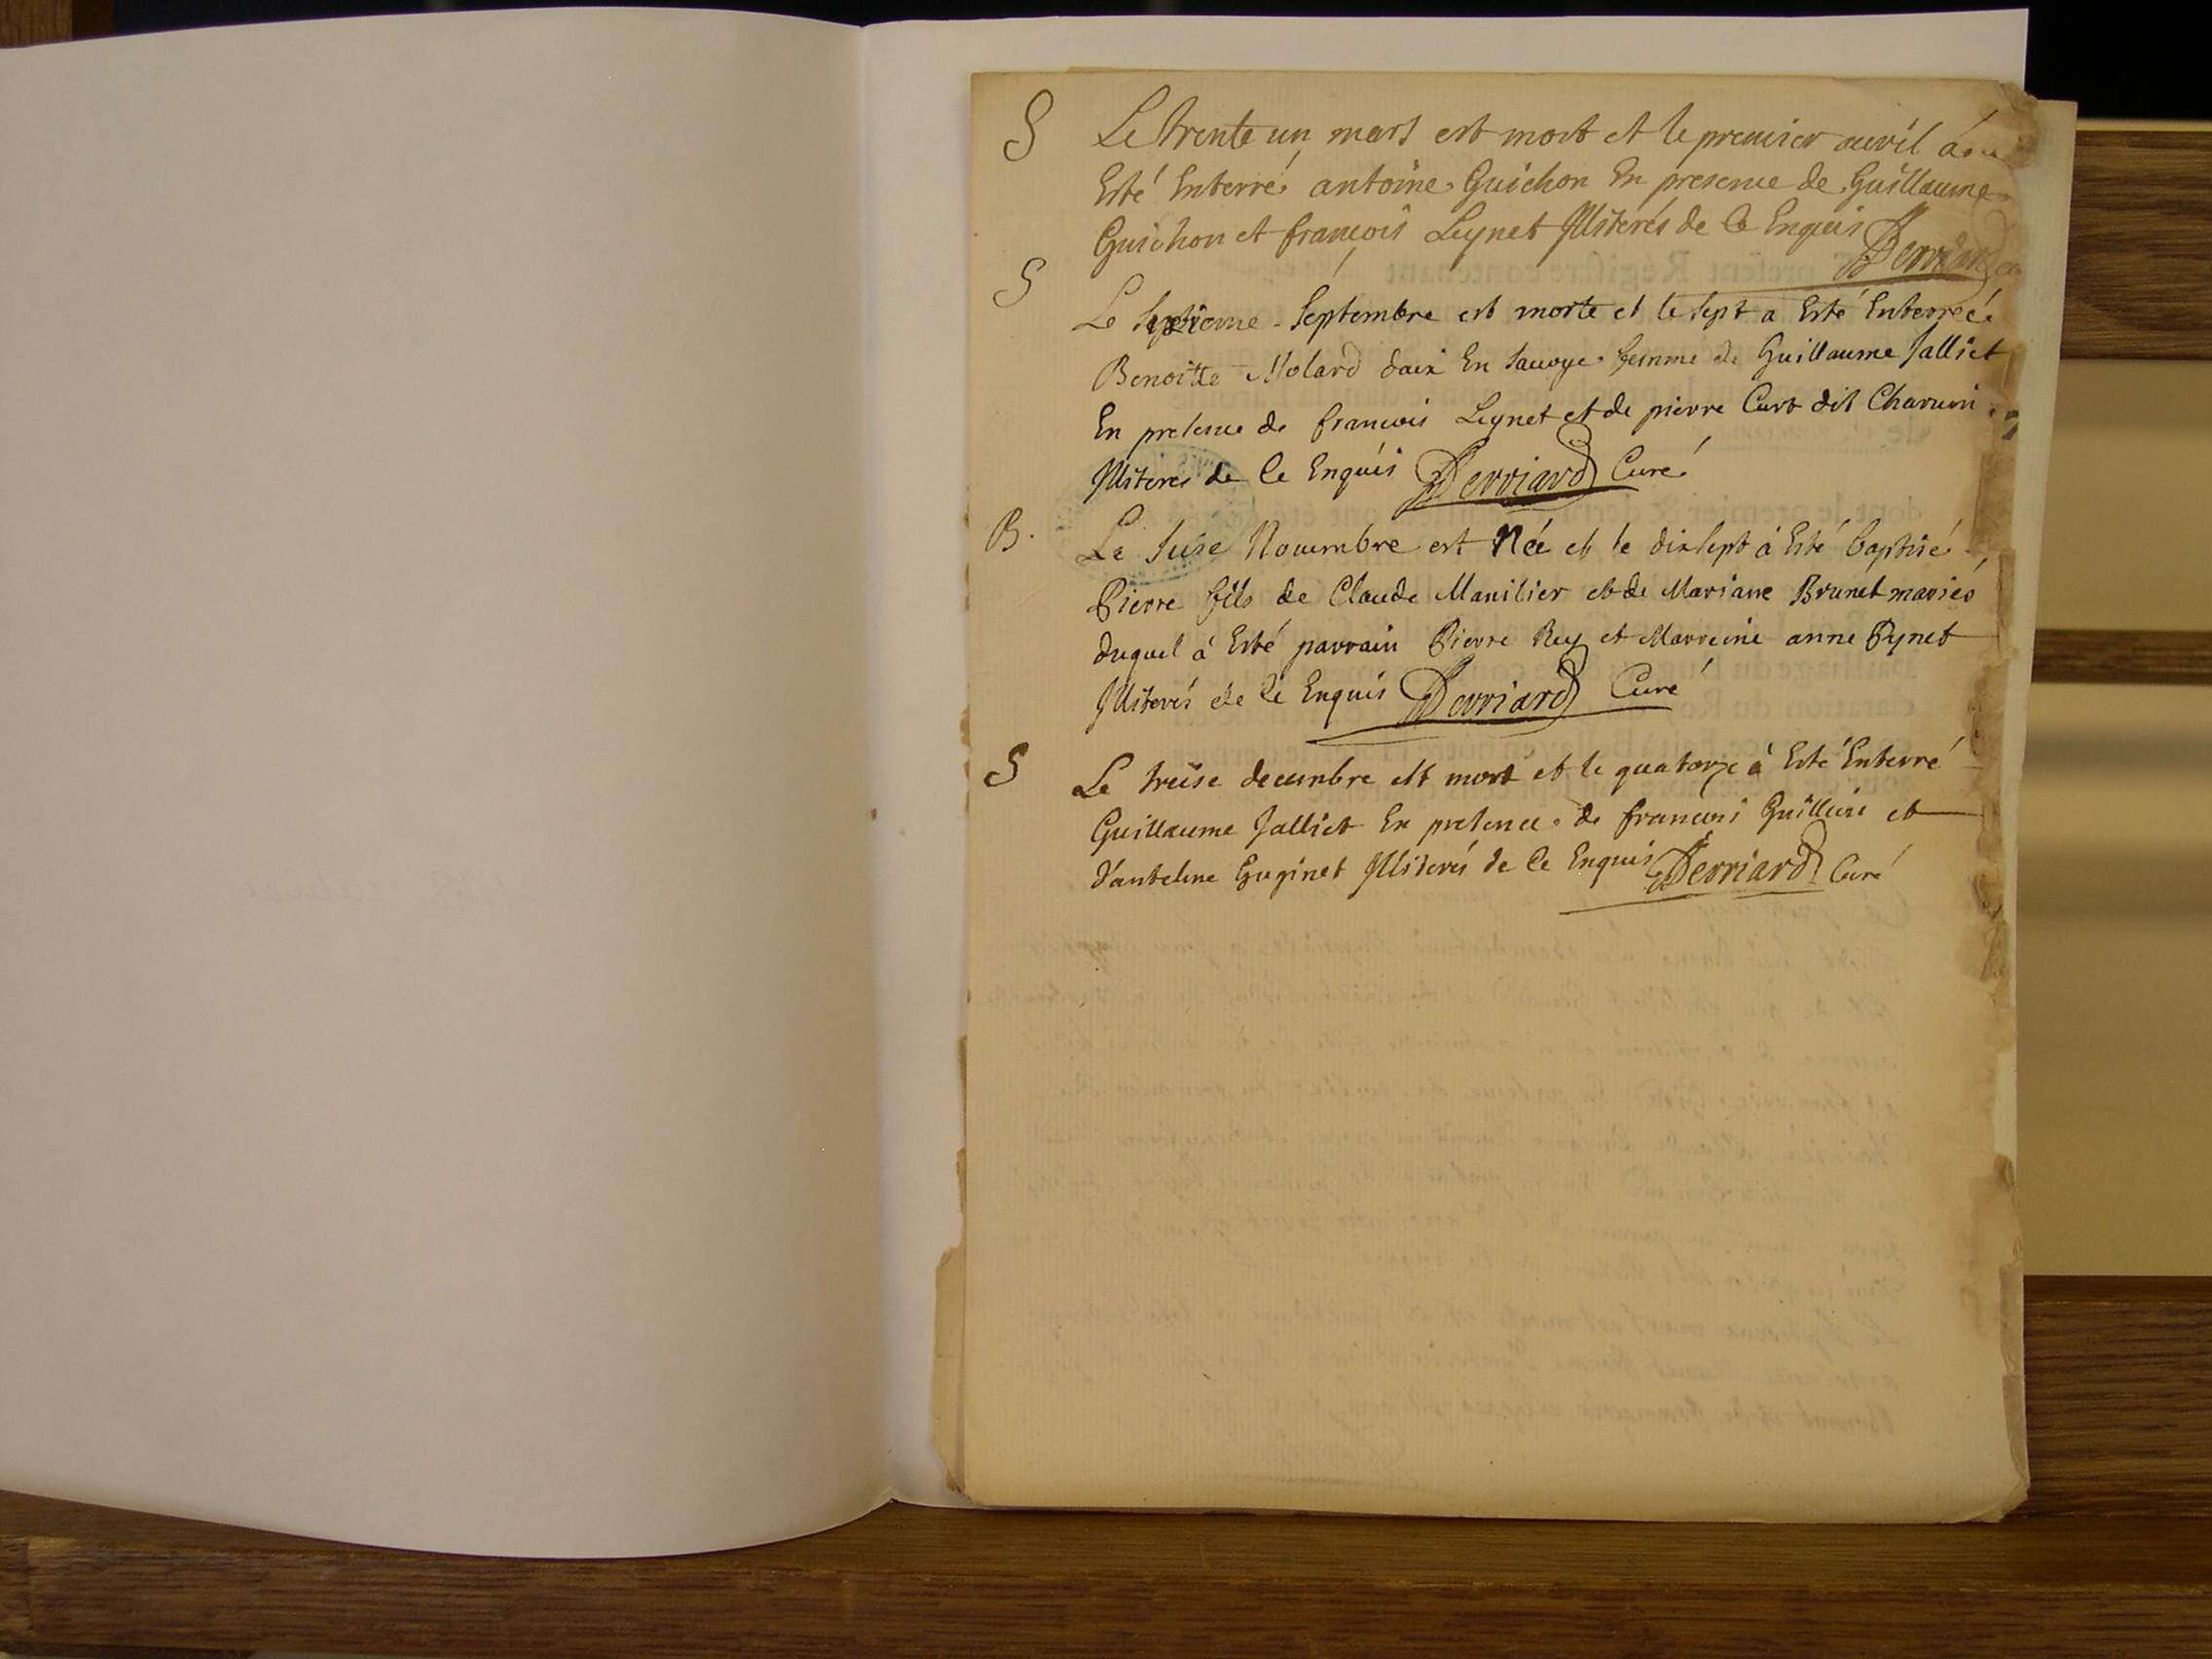 S Le trente un mars est mort et le premier auril a
Esté Enterré antoine Guichon En presence de Guillaume
Guichon et françois Leynet Illiterés de ce Enquis Derriard
S Le septembre est morte et le sept a Esté Enterreé
Benoitte Molard daix En sauoye femme de Guillaume Jalliet
En presence de francois Leynet et de pierre Curt dit Charuin
Illiteres de ce Enquis Derriard Curé
B. Le seise Nouembre est Née et le dixsept à Esté baptisé
Pierre fils de Claude Manilier et de Mariane Brunet mariés
duquel à Esté parrain Pierre Rey et Marreine anne Pynet
Illiterés de ce Enquis Derriard Curé
S Le treise decembre est mort et le quatorze à Esté Enterré
Guillaume Jalliet En presence de francois et
d'antelme Illiterés de ce Enquis Derriard Curé